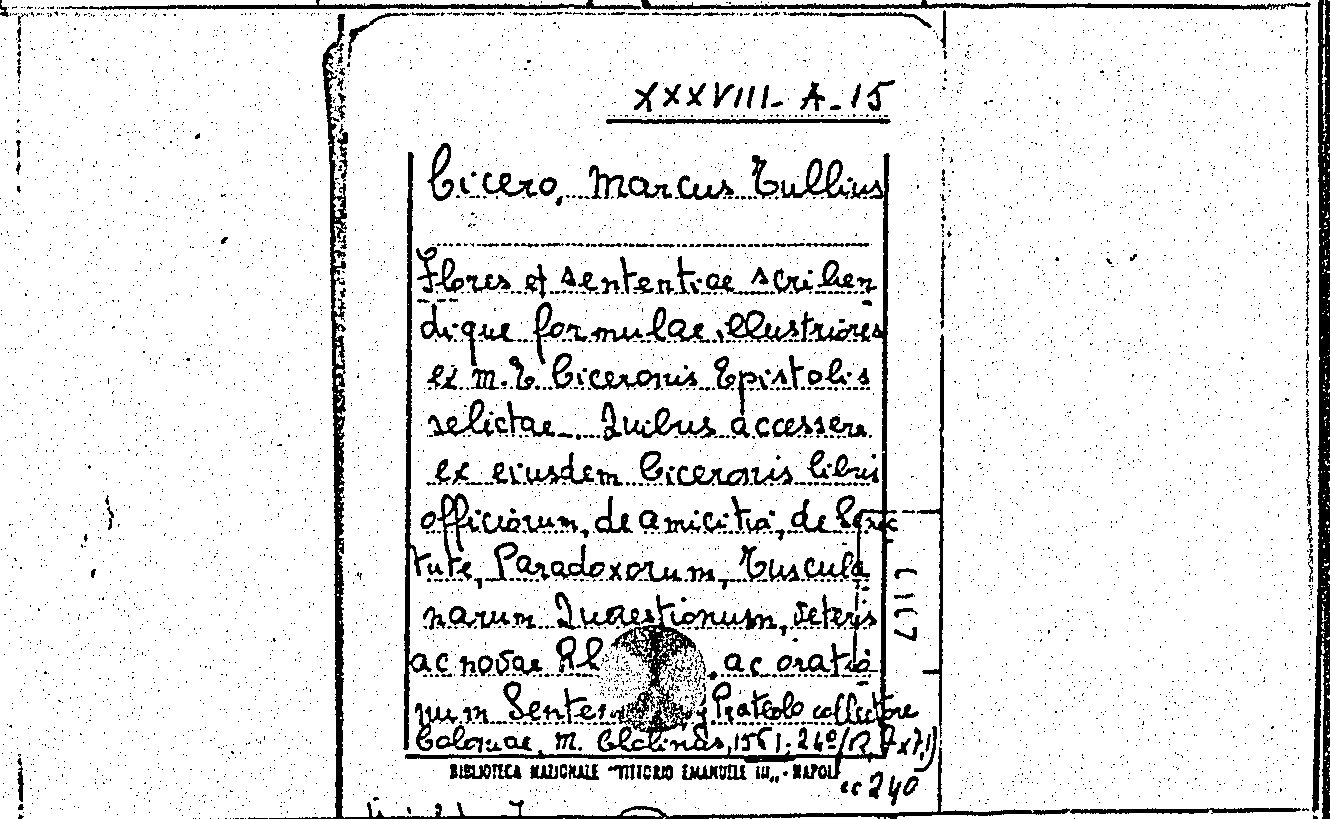 XXXVIII-A-15
Cicero, Marcus Tullius
Flores et sententiae scriben
dique formulae illustriores
ex M.T. Ciceronis Epistolis
selictae. Quibus accessere
ex eiusdem Ciceronis libris
officiorum, de amicitia, de Senec
tute, Paradoxorum, Tuscula
narum Quaestionum, Veteris
ac novae ac oratio
num Prateolo collectore
Coloniae, M. 24º
BIBLIOTECA NAZIONALE "VITTORIO EMANUELE III" - NAPOLI
cc 240